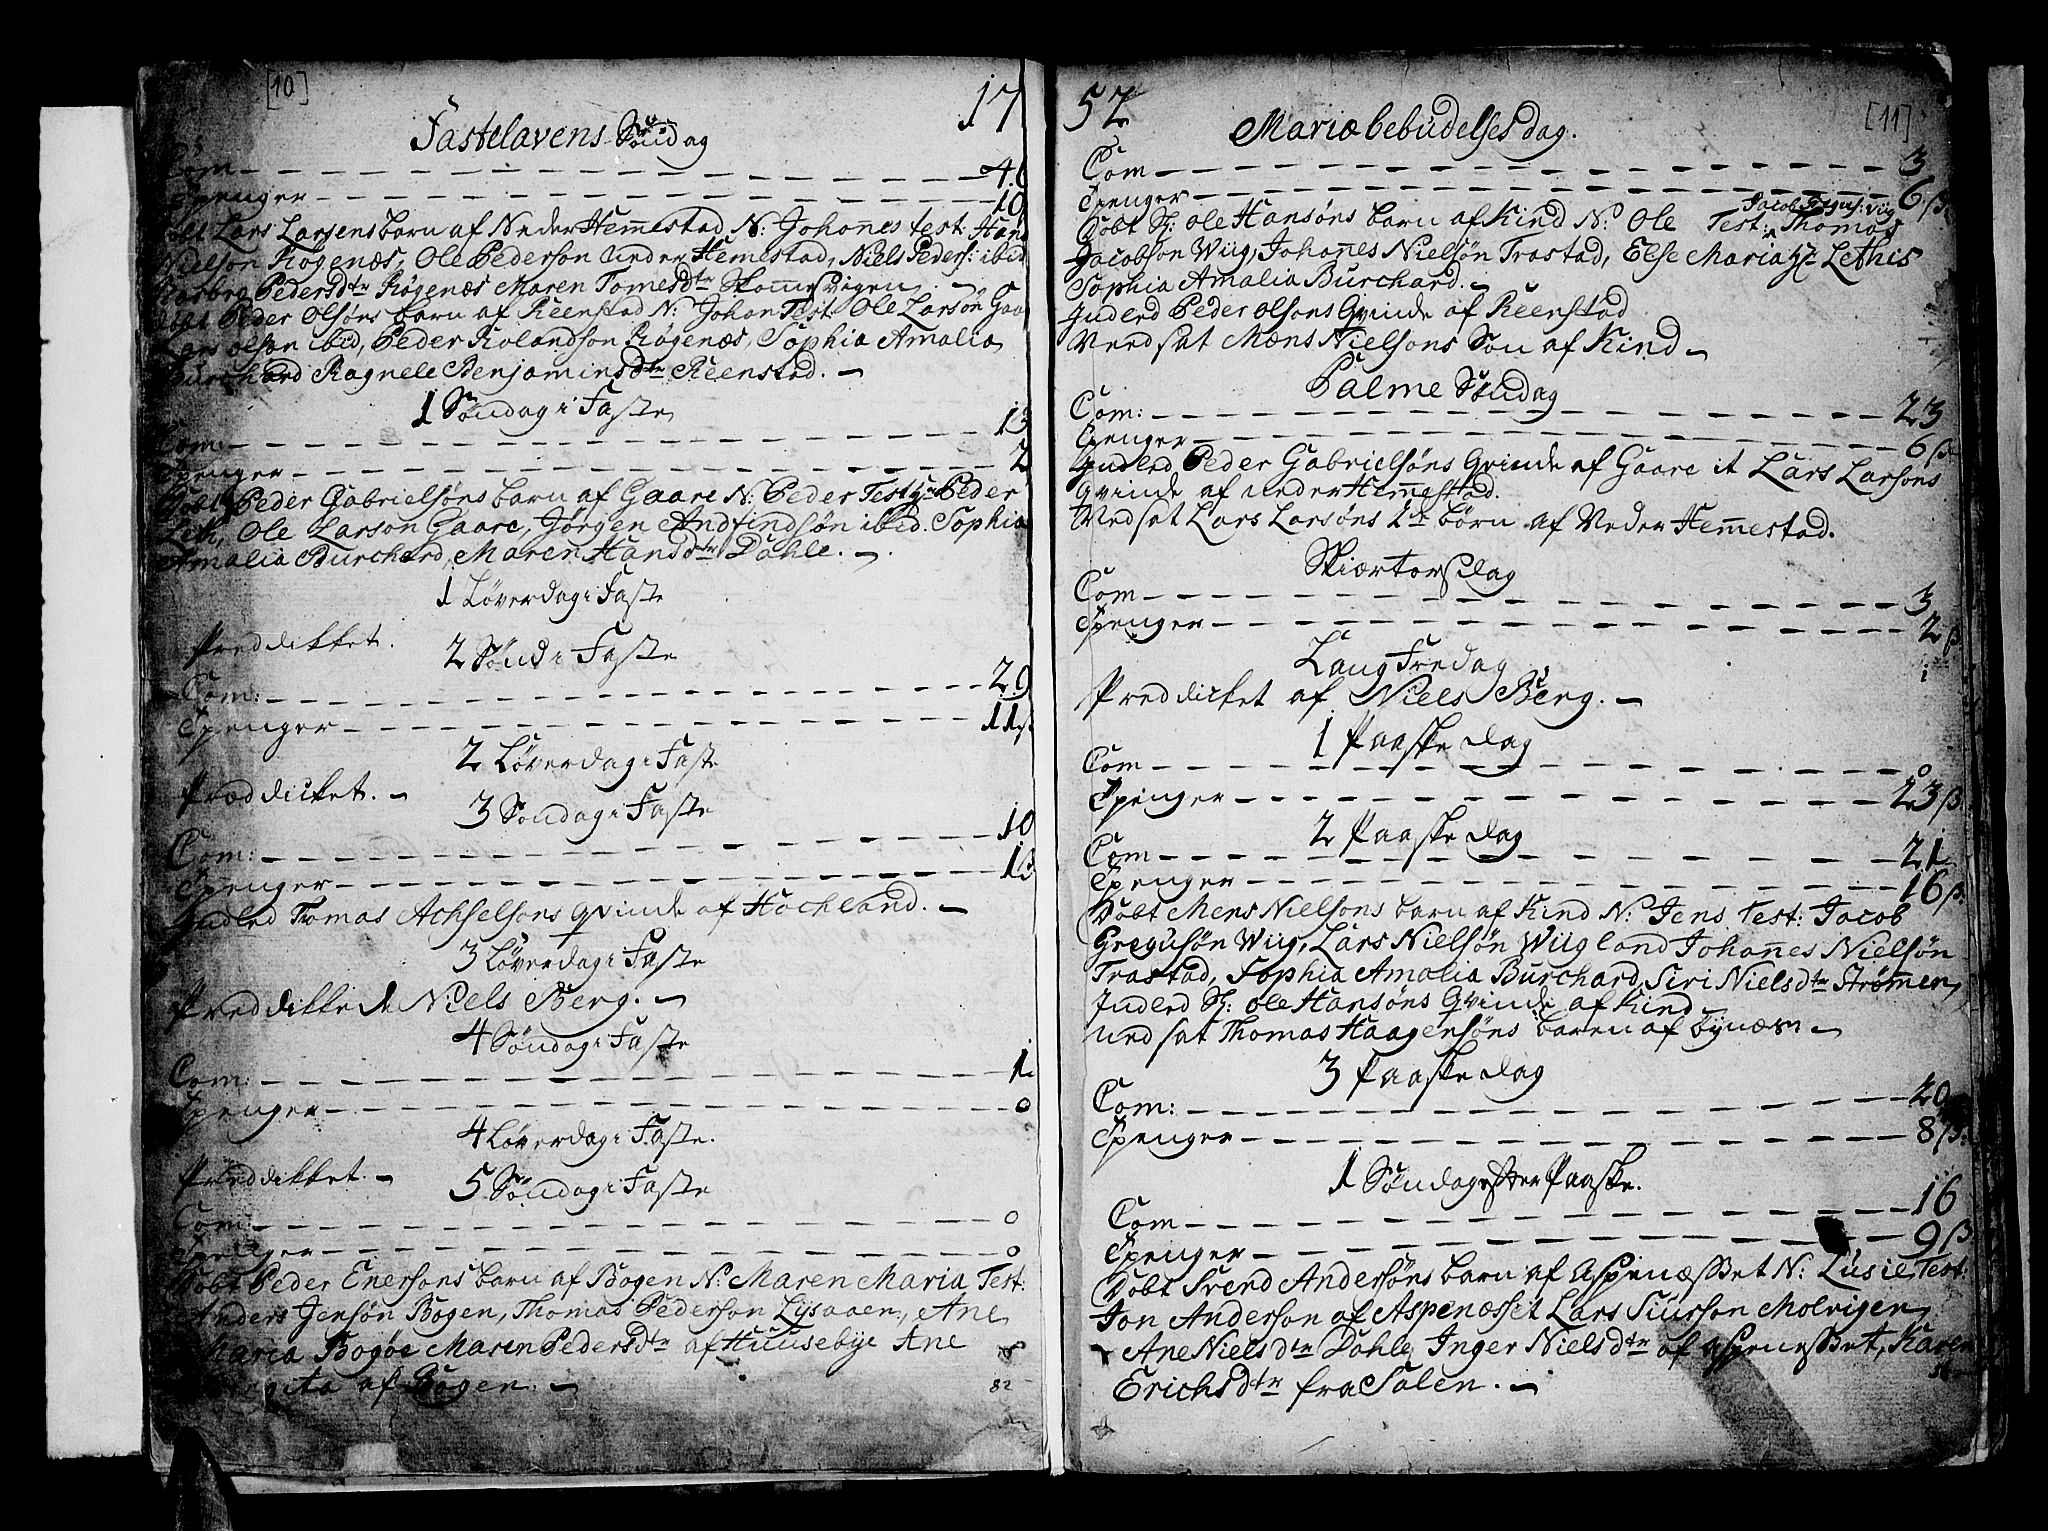 [10]
17
Fastelavens Søndag
Com
Tpenger 10
Døbt Lars Larsens barn af Neder Hemmestad N: Johannes test: Hans
Nielson Røgenæs, Ole Pederson under Hemestad, Niels Peders: ibid
Pedersdtr Røgenæs Maren Tomesdtr
Døbt Peder Olsøns barn af Reenstad N: Johan Test: Ole Larsøn Gaare
Lars olson ibid, Peder Rolandson Røgenæs, Sophia Amalia
Burchard Ragnele Benjaminsdtr Reenstad.
1 Søndag i Faste
Com: 13
Tpenger 2
Døbt Peder Gabrielsøns barn af Gaare N: Peder Test Hr Peder
Leth, Ole Larson Gaare, Jørgen Andfindsøn ibid. Sophia
Amalia Burchard, Maren Hansdtr Dahle.
1 Løverdag i Faste
Preddikket.
2 Sønd i Faste
Com: 29
Tpenger 11
2 Løverdag i Faste
Præddicket.
3 Søndag i Faste
Com: 10
Tpenger 1ß
Jndled Tomas Achselsons qvinde af Hochland.
3 Løverdag i Faste
Preddikked Niels Berg.
4 Søndag i Faste
Com: 1
Tpenger 0
4 Løverdag i Faste.
Præddikket.
5 Søndag i Faste
Com: 0
Tpenger 0
Døbt Peder Enersons barn af Bogen N: Maren Maria Test:
Anders Jensøn Bogen, Thomas Pederson Lysaaen, Ane
Maria Bogøe Maren Pedersdtr af Huusebye Ane
af Bogen.
82
52
[11]
Mariæ bebudelses dag.
Com 3
Tpenger 6ß
Døbt Sl: Ole Hansøns barn af Kind N: Ole Test: Thomas
Jacob Gregus: Viig
Jacobson Wiig, Johannes Nielsøn Trastad, Else Maria Sl: Lethis
Sophia Amalia Burchard.
Jnderd Peder Olsons Qvinde af Reenstad
Vedsat Mæns Nielsons Søn af Kind
Palme Søndag
Com: 23
Tpenger 6ß
Jnderd Peder Gabrielsøns Qvinde af Gaare it Lars Larsons
Qvinde af under Hemmestad.
Vedsat Lars Larsøns 2de børn af Neder Hemmestad.
Skiærtorsdag
Com 3
Tpenger 2ß
Lang Fredag
Preddicket af Niels Berg.
1 Paaske dag
Com 0
Tpenger 23ß
2 Paaske dag
Com 21
Tpenger 16ß
Døbt Mens Nielsons barn af Kind N: Jens Test: Jacob
Gregusøn Wiig, Lars Nielsøn Wiigland Johannes Nielsøn
Trastad, Sophia Amalia Burchard, Siri Nielsdtr Strømmen,
Jnderd Sl: Ole Hansøns Qvinde af Kind
undsat Thomas Haagensøns baren af Bynæsn
3 Paaske dag
Com: 20
Tpenger 8ß
1 Søndag efter Paaske.
Com 16
Tpenger 9ß
Døbt Svend Andersøns barn af Aspenæsset N: Lusie, Test:
Jon Anderson af Aspenæsset Lars Siurson Molvigen
Ane Nielsdtr Dahle, Inger Nielsdtr af Aspenesset, Karen
Erichsdtr fra Salen.